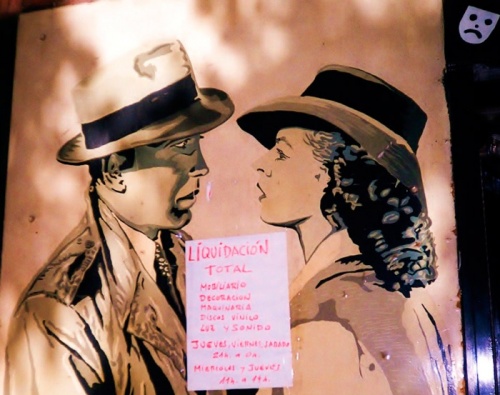 LIQUIDACIÓN
TOTAL
MOBILIARIO
DECORACION
MAQUINARIA
DISCOS VINILO
LUZ Y SONIDO
JUEVES, VIERNES, SABADO
MIERCOLES Y JUEVES